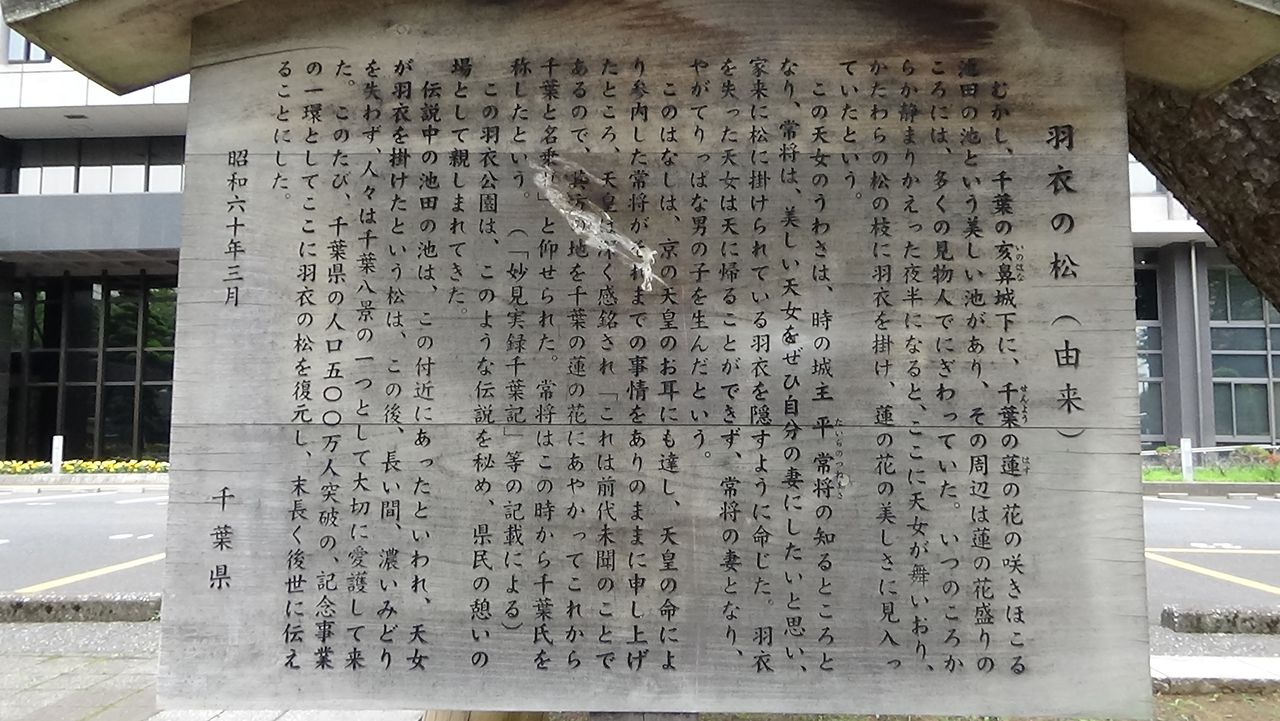 羽衣の松（由来）
むかし、千葉の亥鼻城下に、千葉の蓮の花の咲きほこる
池田の池という美しい池があり、その周辺は蓮の花盛りの
ころには、多くの見物人でにぎわっていた。いつのころか
らか静まりかえった夜半になると、ここに天女が舞いおり、
かたわらの松の枝に羽衣を掛け、蓮の花の美しさに見入っ
ていたという。
この天女のうわさは、時の城主 平 常将の知るところと
なり、常将は、美しい天女をぜひ自分の妻にしたいと思い、
家来に松に掛けられている羽衣を隠すように命じた。羽衣
を失った天女は天に帰ることができず、常将の妻となり、
やがてりっぱな男の子を生んだという。
このはなしは、京の天皇のお耳にも達し、天皇の命によ
り参内した常将がそれまでの事情をありのままに申し上げ
たところ、天皇は深く感銘され「これは前代未聞のことで
あるので、其方の地を千葉の蓮の花にあやかってこれから
千葉と名乗」と仰せられた。常将はこの時から千葉氏を
称したという。（「妙見実録千葉記」等の記載による）
この羽衣公園は、このような伝説を秘め、県民の憩いの
場として親しまれてきた。
伝説中の池田の池は、この付近にあったといわれ、天女
が羽衣を掛けたという松は、この後、長い間、濃いみどり
を失わず、人々は千葉八景の一つとして大切に愛護して来
た。このたび、千葉県の人口五〇〇万人突破の、記念事業
の一環としてここに羽衣の松を復元し、末長く後世に伝え
ることにした。
昭和六十年三月
千葉県